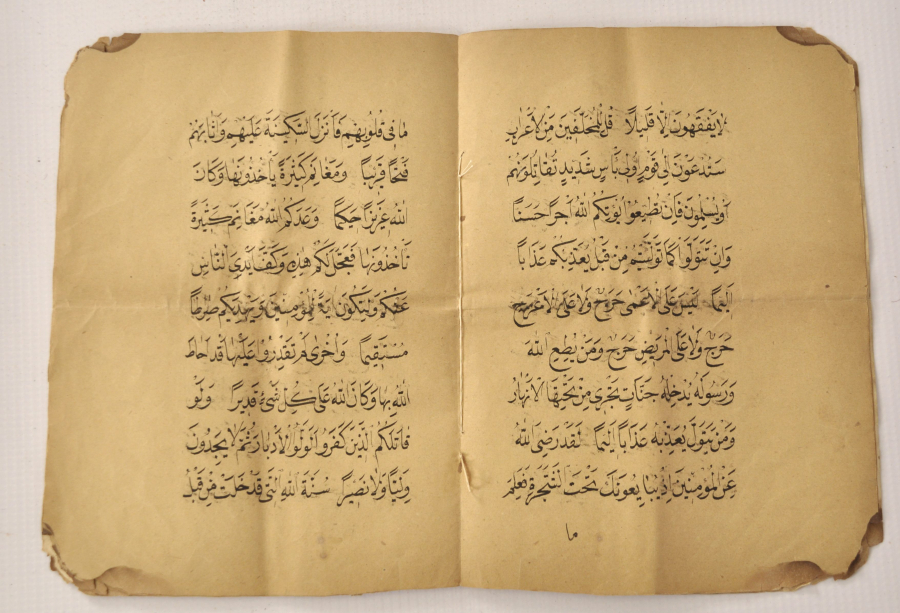 لا يفقهون الا قليلا قل للمخلفين من الاعراب
ستدعون الى قوم اولى باس شديد تقاتلونهم
او يسلمون فان تطيعوا يوتكم الله اجرا حسنا
وان تتولوا كما توليتم من قبل يعذبكم عذابا
اليما ليس على الاعمى حرج ولا على الاعرج
حرج ولا على المريض حرج ومن يطع الله
ورسوله يدخله جنات تجرى من تحتها الانهار
ومن يتول يعذبه عذابا اليما لقد رضى الله
عن المومنين اذ يبايعونك تحت الشجرة فعلم
ما
ما فى قلوبهم فانزل السكينة عليهم واثابهم
فتحا قريبا ومغانم كثيرة ياخذونها وكان
الله عزيزا حكيما وعدكم الله مغانم كثيرة
تاخذونها فعجل لكم هذه وكف ايدى الناس
عنكم ولتكون اية للمومنين ويهديكم صراطا
مستقيما واخرى لم تقدروا عليها قد احاط
الله بها وكان الله على كل شىء قديرا ولو
قاتلكم الذين كفروا لولوا الادبار ثم لا يجدون
وليا ولا نصيرا سنة الله التى قد خلت من قبل